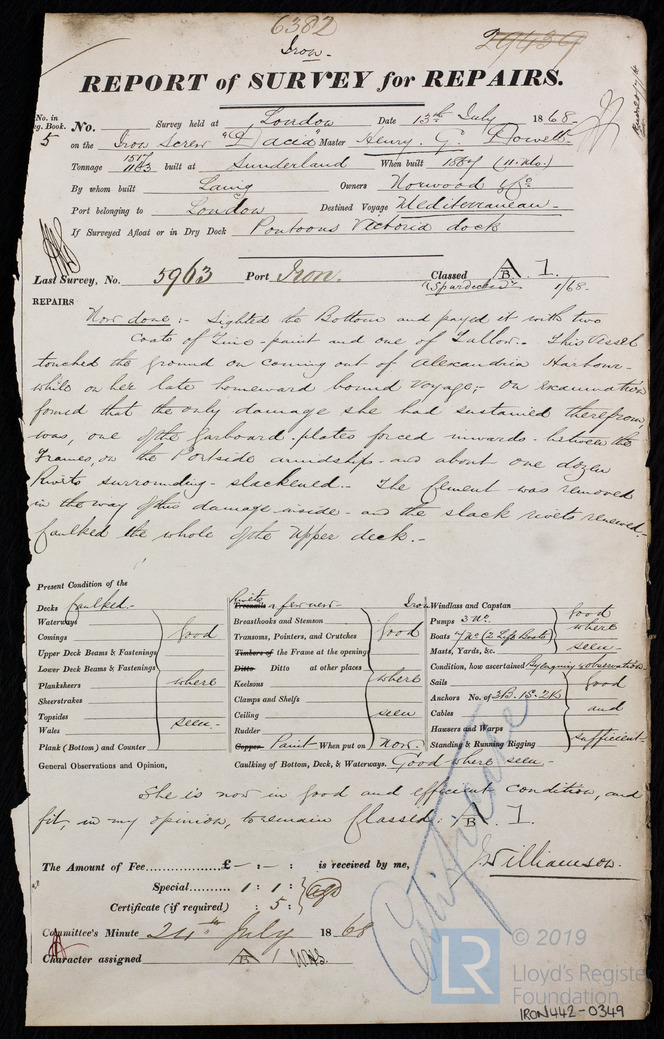 6382
29439
Iron.
REPORT of SURVEY for REPAIRS.
No. in
eg. Book.
5
No. Survey held at London Date 13th July 1868.
on the Iron Screw "Dacia" Master Henry. G. Dowell.
Tonnage 1517 1163 built at Sunderland When built 1867 (11.Mo.)
By whom built Laing Owners Norwood & Co.
Port belonging to London Destined Voyage Mediterranean.
If Surveyed Afloat or in Dry Dock Pontoons Victoria dock
Last Survey, No. 5963 Port Iron. Classed A/B. 1.
"Spardecked" 1/68.
REPAIRS
Now done:- Sighted the Bottom and payed it with two
Coats of Zinc-paint and one of Tallow.- This Vessel
touched the ground on coming out of Alexandria Harbour-
while on her late homeward bound Voyage;- On examination
found that the only damage she had sustained therefrom,
was, one of the Garboard-plates forced inwards-between the
Frames, on the Portside amidships-and about one dozen
Rivets surrounding-slackened.- The Cement was removed
in the way of this damage inside-and the slack rivets renewed.
Caulked the whole of the Upper deck.-
Present Condition of the
Decks Caulked.-
Waterways
Comings
Upper Deck Beams & Fastenings
Lower Deck Beams & Fastenings
Planksheers
Sheerstrakes
Topsides
Wales
Plank (Bottom) and Counter
good
where
seen.-
Rivets
Treenails a few new-
Breasthooks and Stemson
Transoms, Pointers, and Crutches
Timbers of the Frame at the opening
Ditto Ditto at other places
Keelsons
Clamps and Shelfs
Ceiling
Rudder
Copper Paint When put on Now.
good
where
seen
Iron Windlass and Capstan
Pumps 3 No.
Boats 7 No (2 Life Boats)
Masts, Yards, &c.
good
where
seen.-
Condition, how ascertained By enquiry & observation
Sails
Anchors No. of 3B.1S.2K
Cables
Hausers and Warps
Standing & Running Rigging
good
and
sufficient
General Observations and Opinion, Caulking of Bottom, Deck, & Waterways. Good where seen.-
She is now in good and efficient Condition, and
fit, in my opinion, to remain Classed:- A/B. 1.
Certificate
The Amount of Fee.................£ - : - : is received by me,
J. Williamson.
Special........... 1 : 1 :
Certificate (if required) : 5 :
Committee's Minute 24th July 1868
Character assigned A/B 1
LR
© 2019
Lloyd's Register
Foundation
IRON442-0349